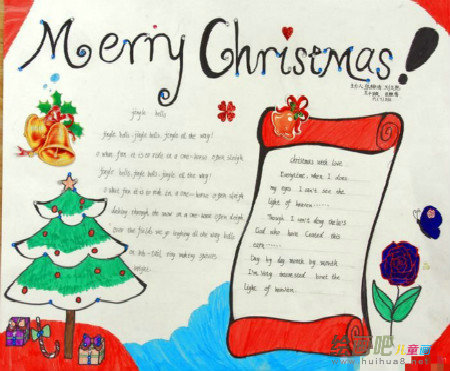 Merry Christmas!
jingle bells
jingle bells jingle bells jingle all the way!
O what fun it is to ride in a one-horse open sleigh
jingle bells jingle bells jingle all the way!
O what fun it is to ride in a one-horse open sleigh
dashing through the snow in a one-horse open sleigh
over the fields we go laughing all the way bells
on bob-tail ring making spirits
bright
Christmas with love
Everytime when I close
my eyes I can't see the
light of heaven
Though I can't deny there's
God who have this
earth
Day by day month by month
I'm very the
light of heaven
绘画吧 儿童画
www.huihua8.net